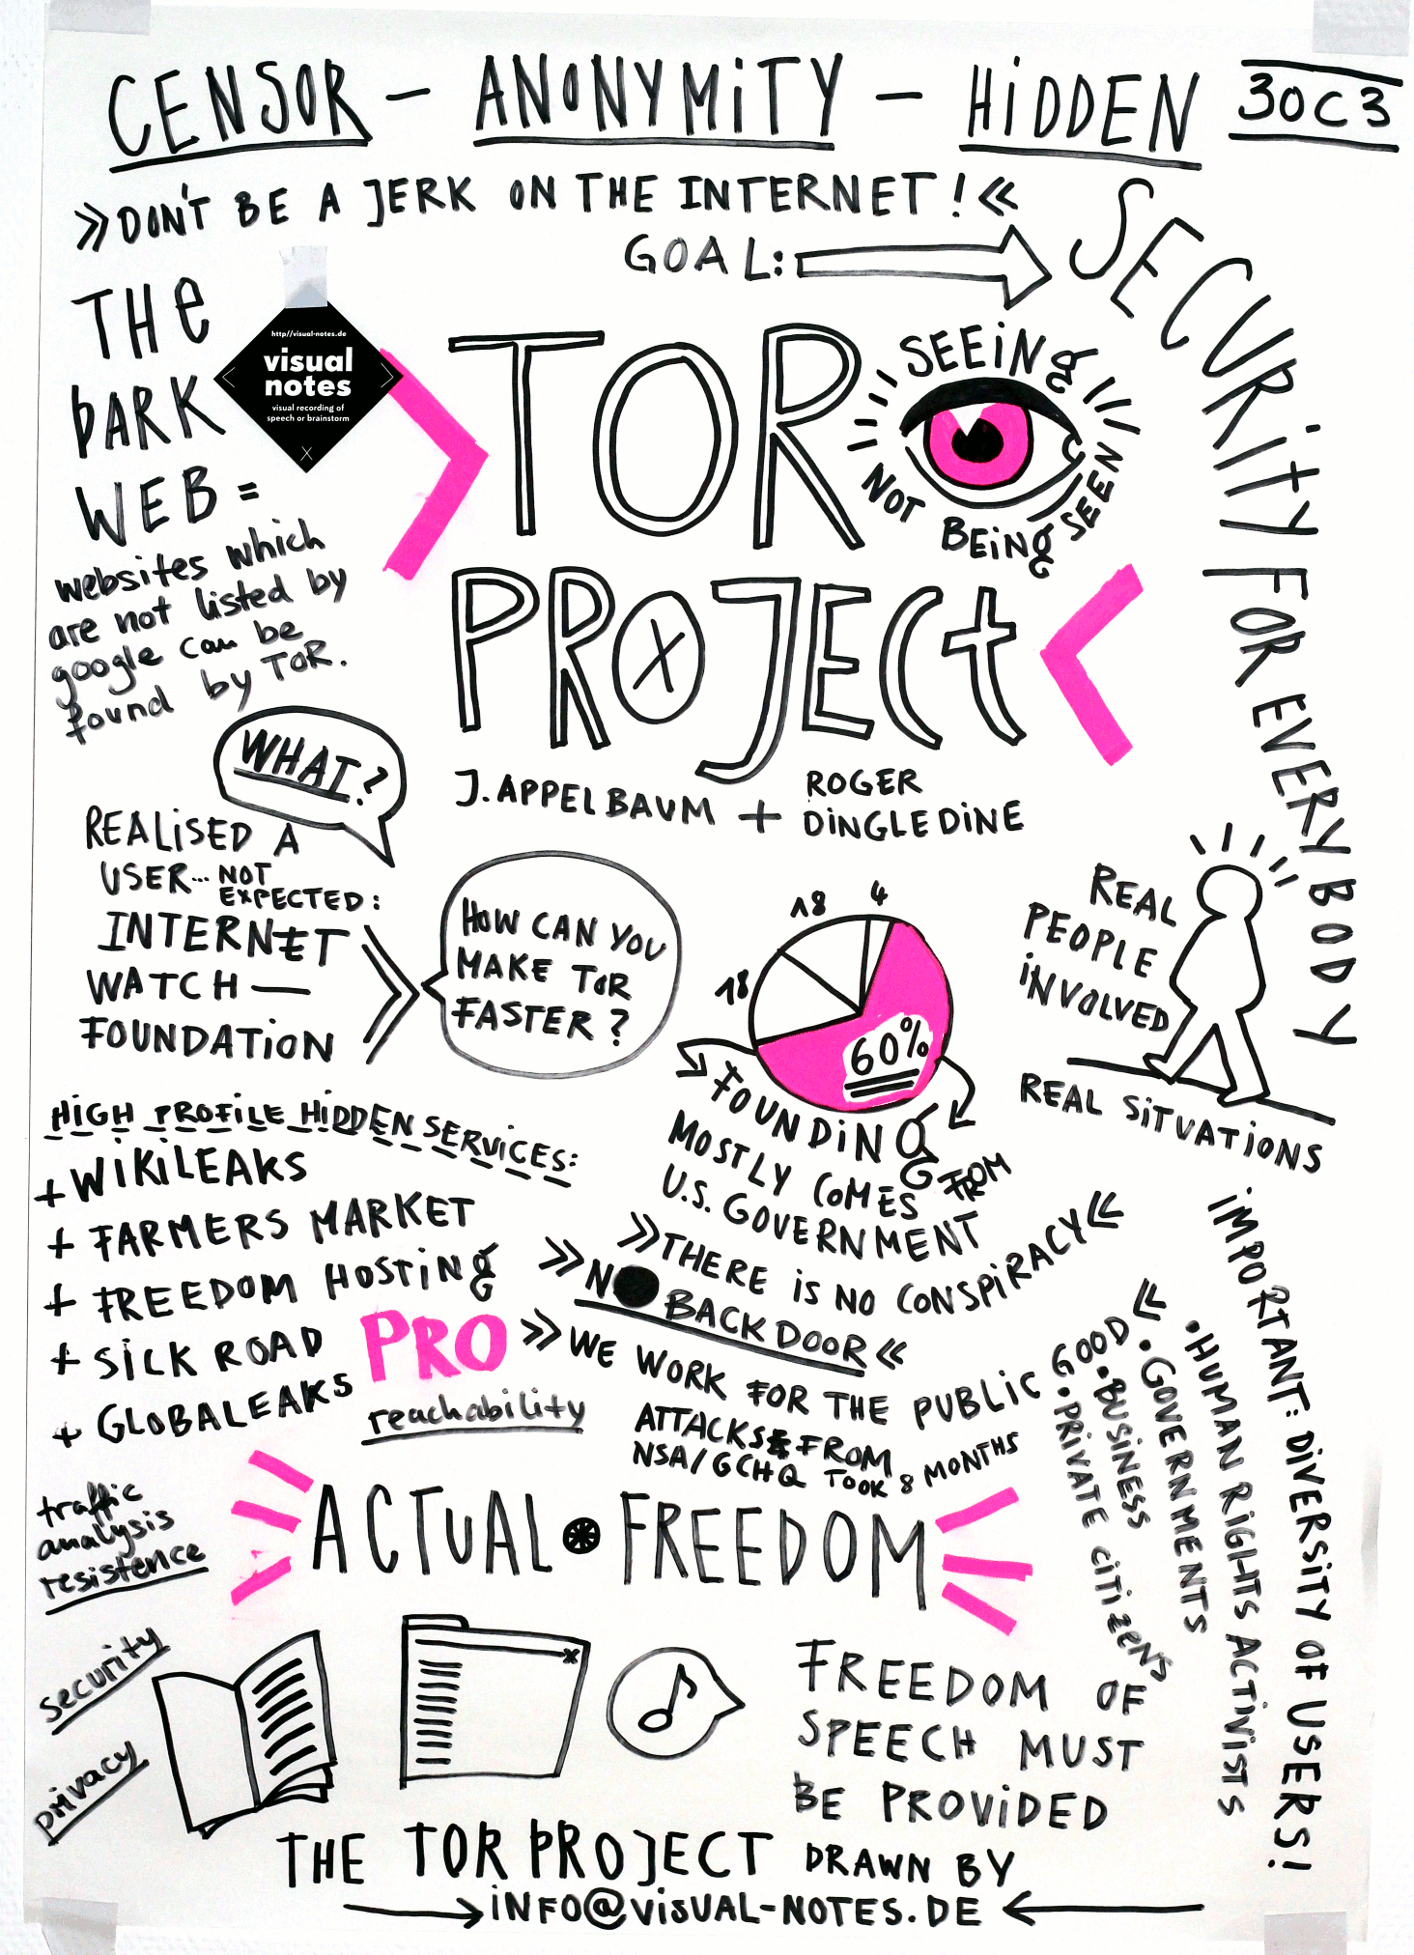 CENSOR - ANONYMITY - HIDDEN
30C3
»DON'T BE A JERK ON THE INTERNET!«
GOAL:
SECURITY FOR EVERYBODY
THE
DARK
WEB =
websites which
are not listed by
google can be
found by TOR.
http//visual-notes.de
visual
notes
visual recording of
speech or brainstorm
X
TOR
SEEING
NOT BEING SEEN
PROJECT
J. APPELBAUM + ROGER
DINGLEDINE
WHAT?
REALISED A
USER... NOT
EXPECTED:
INTERNET
WATCH —
FOUNDATION
HOW CAN YOU
MAKE TOR
FASTER?
18
4
18
60%
FOUNDING
MOSTLY COMES FROM
U.S. GOVERNMENT
REAL
PEOPLE
INVOLVED
REAL SITUATIONS
HIGH PROFILE HIDDEN SERVICES:
+ WIKILEAKS
+ FARMERS MARKET
+ FREEDOM HOSTING
+ SILK ROAD
+ GLOBALEAKS
»THERE IS NO CONSPIRACY«
»NO BACKDOOR«
PRO
reachability
»WE WORK FOR THE PUBLIC GOOD«
ATTACKS FROM
NSA/GCHQ TOOK 8 MONTHS
IMPORTANT: DIVERSITY OF USERS!
• HUMAN RIGHTS ACTIVISTS
• GOVERNMENTS
• BUSINESS
• PRIVATE CITIZENS
traffic
analysis
resistence
security
privacy
ACTUAL FREEDOM
FREEDOM OF
SPEECH MUST
BE PROVIDED
THE TOR PROJECT DRAWN BY
INFO@VISUAL-NOTES.DE